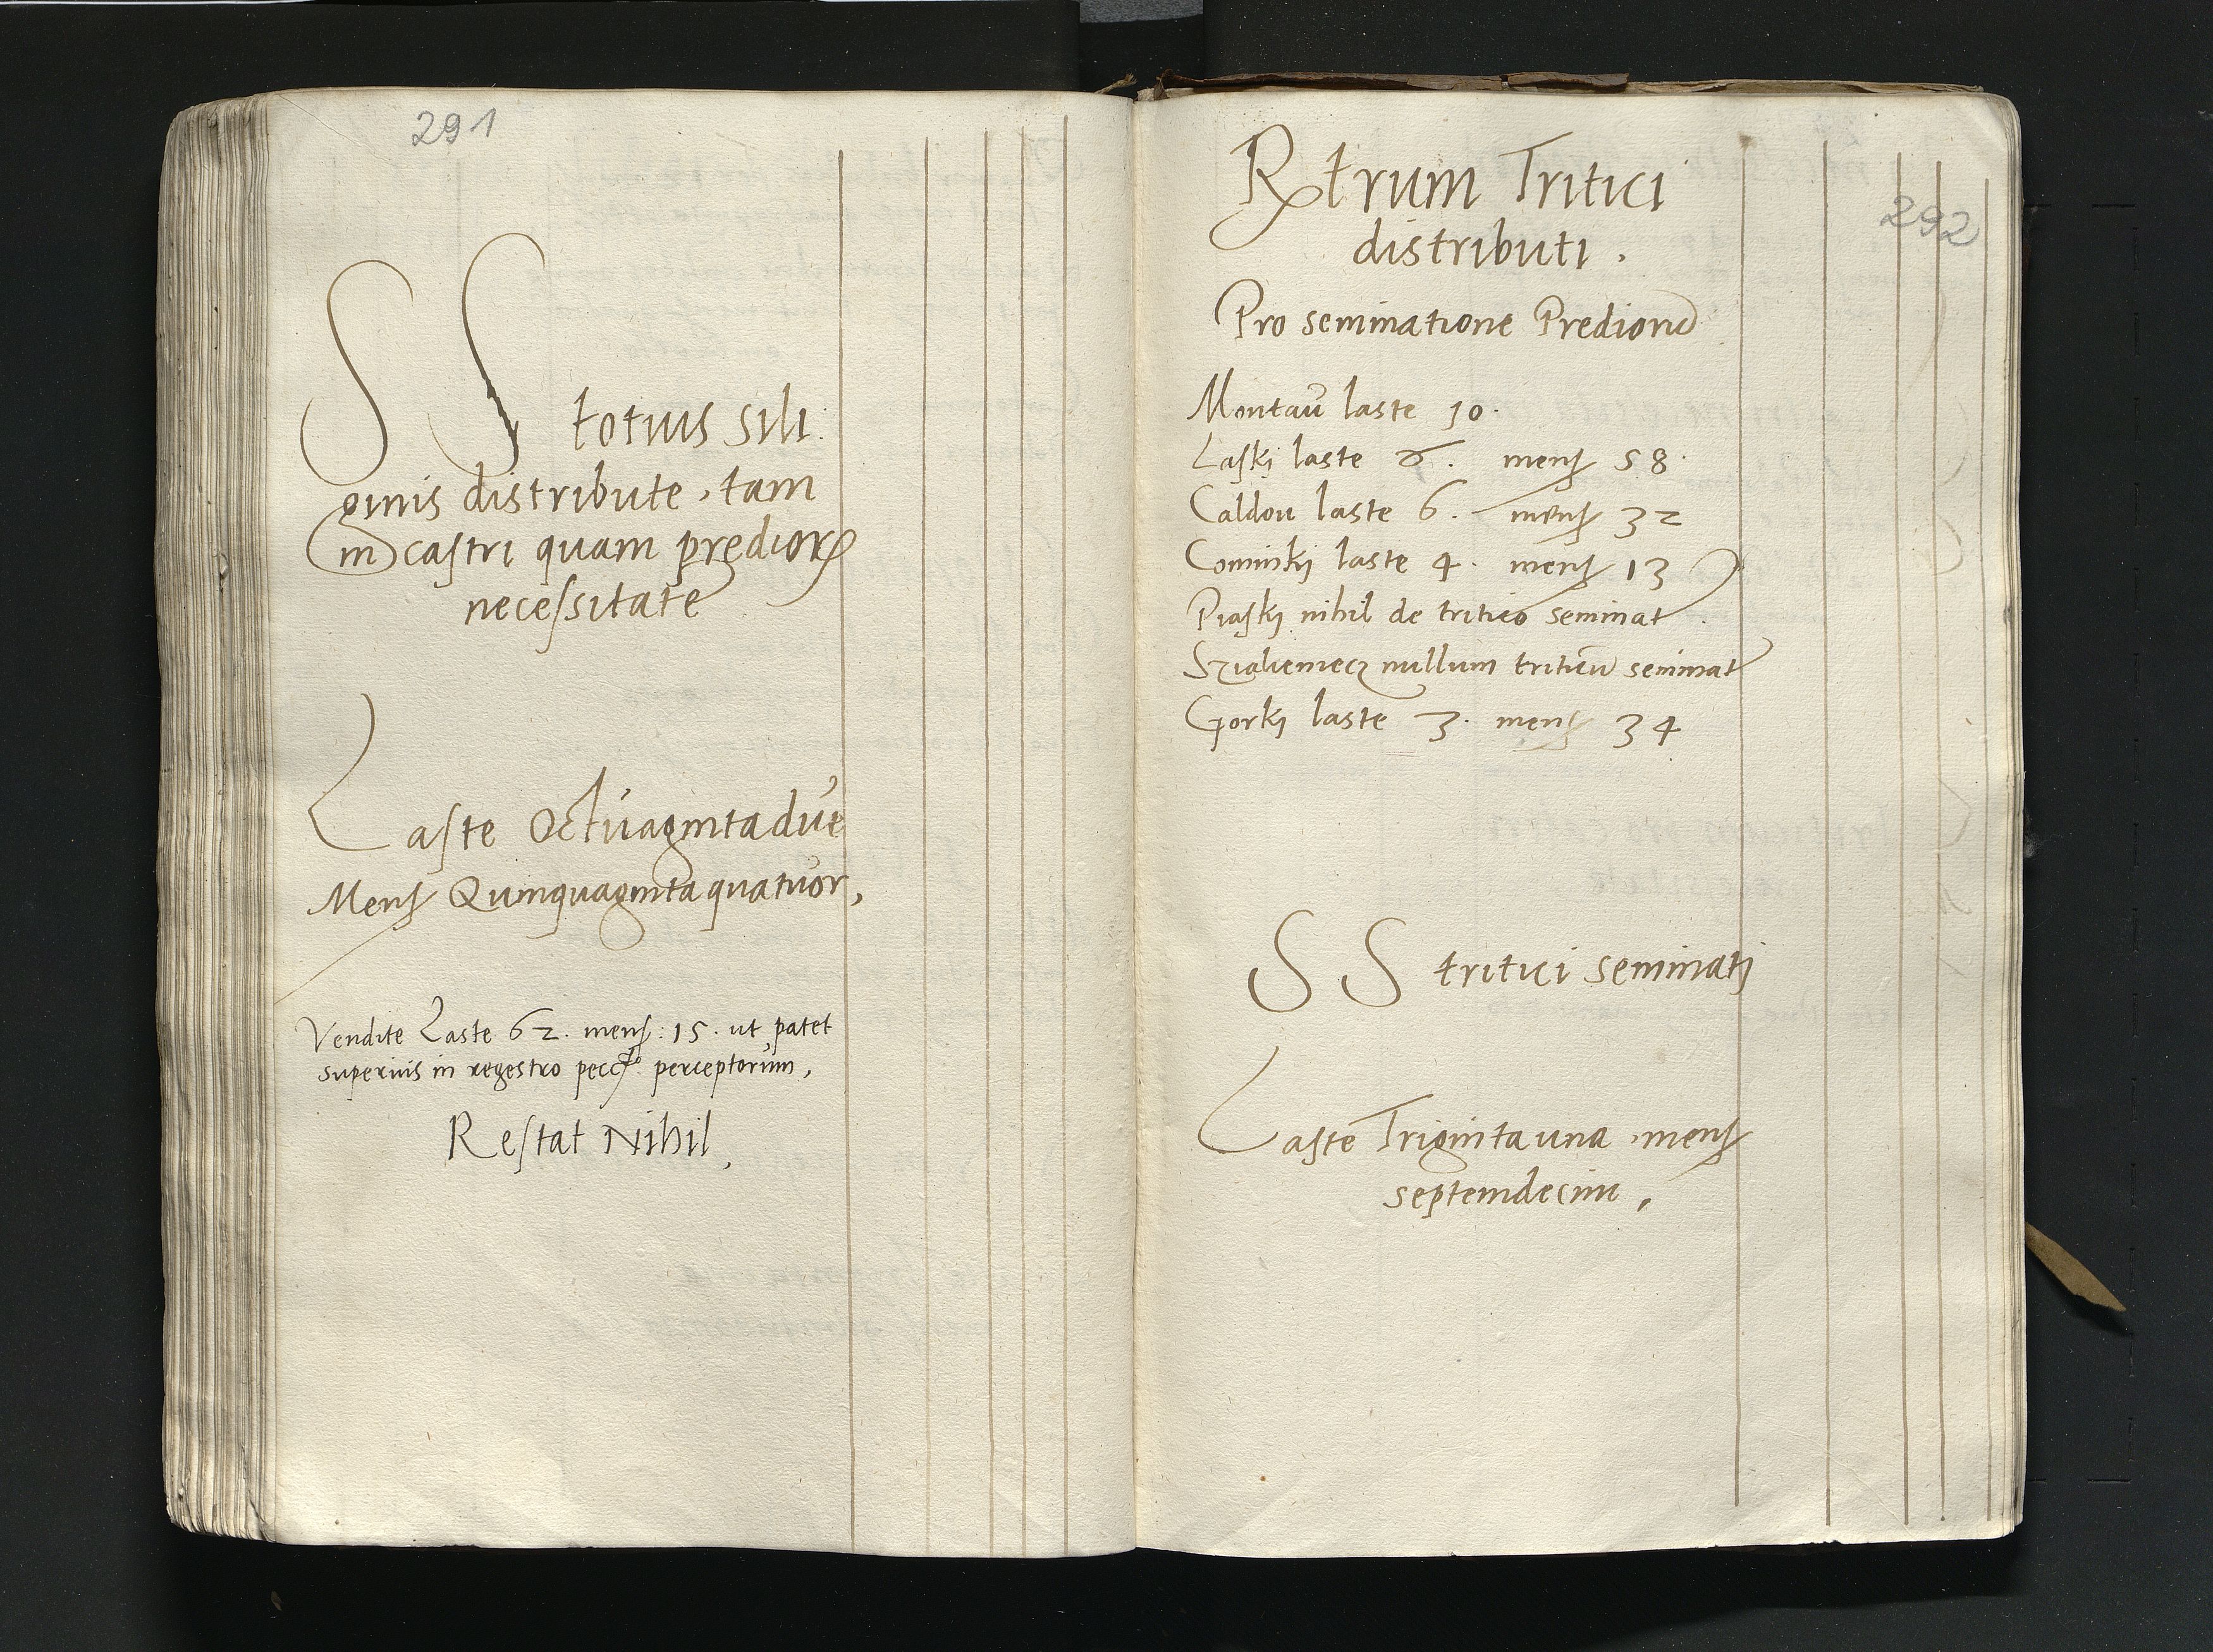 291
SS totius sili:
ginis distribute, tam
in castri quam predior
necessitate
Laste Octuagintadue
Mens Quinquaginta quatuor,
Vendite Laste 62. mens: 15. ut patet
superius in regestro perceptorum,
Restat Nihil,
292
Rtrum Tritici
distributi.
Pro seminatione Prediorū
Montaū laste 10.
Laski laste 6. mens 58.
Caldou laste 6. mens 32
Cominki laste 4. mens 13
Piaski nihil de tritico seminat.
nullum triticū seminat
Gorki laste 3. mens 34
SS tritici seminati
Laste Triginta una mens
septemdecim,